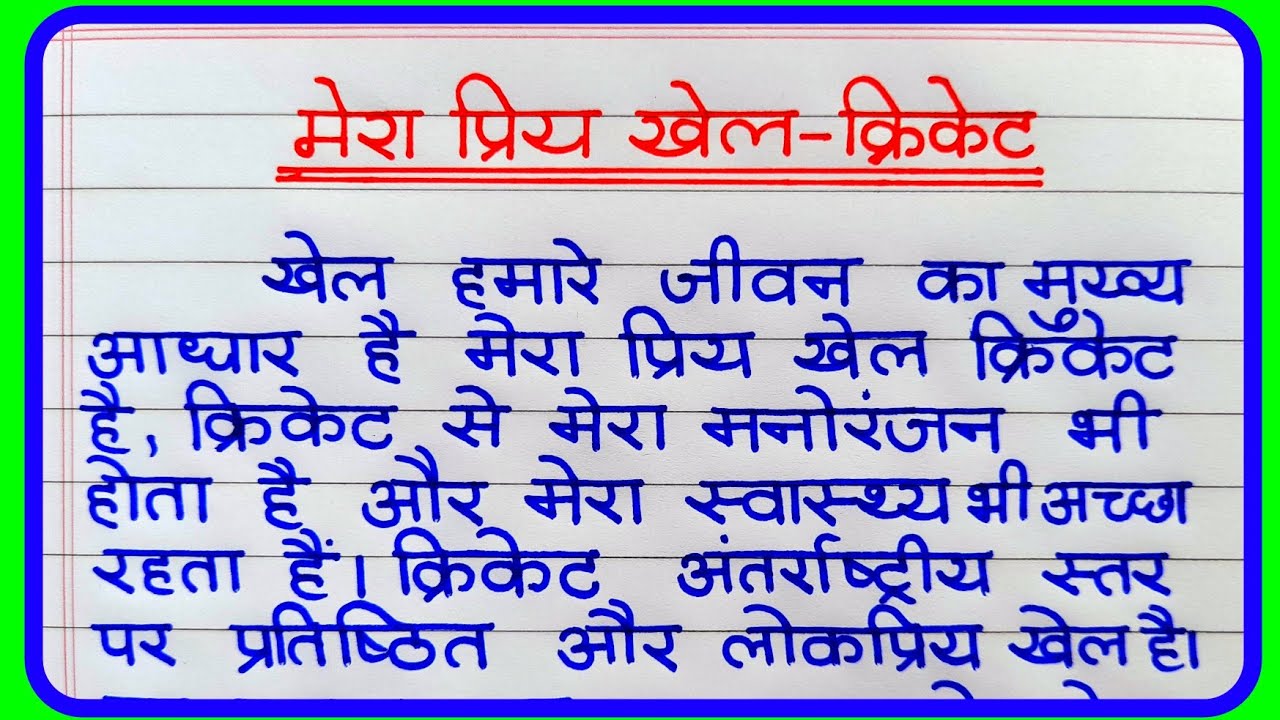 मेरा प्रिय खेल-क्रिकेट
खेल हमारे जीवन का मुख्य
आधार है मेरा प्रिय खेल क्रिकेट
है, क्रिकेट से मेरा मनोरंजन भी
होता है और मेरा स्वास्थ्य भी अच्छा
रहता हैं। क्रिकेट अंतर्राष्ट्रीय स्तर
पर प्रतिष्ठित और लोकप्रिय खेल है।